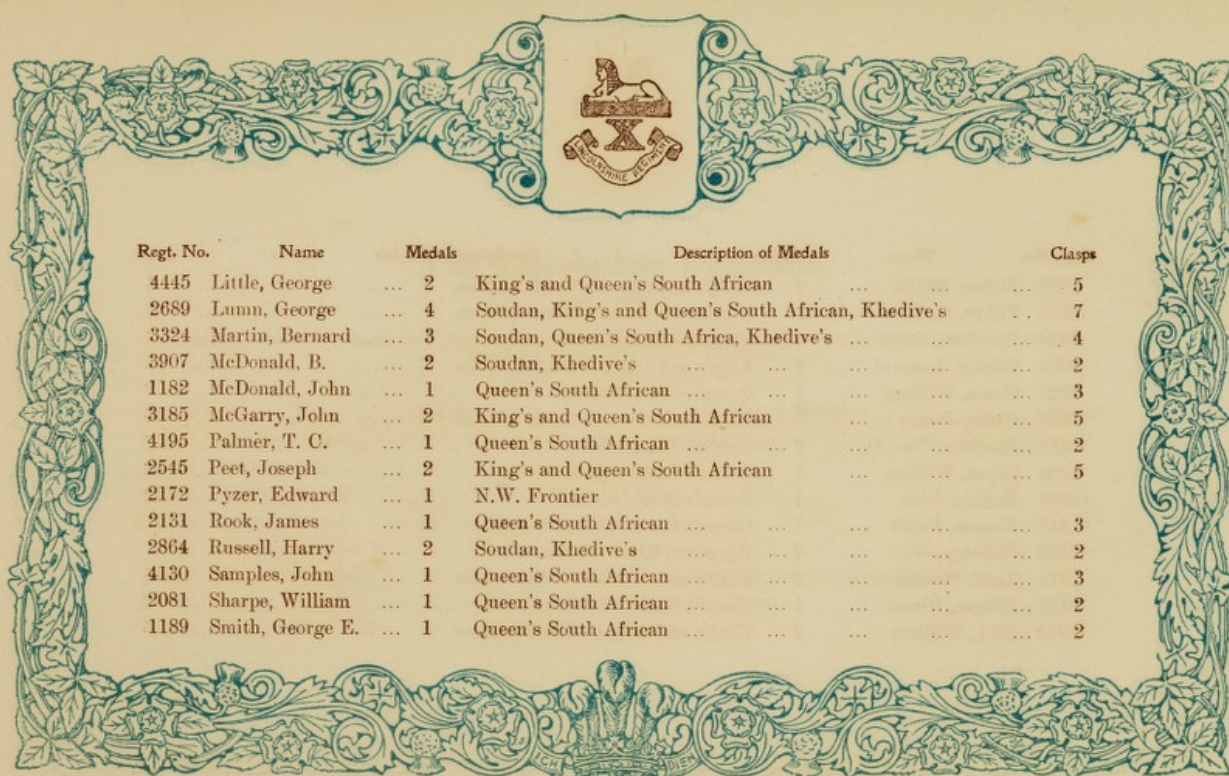 LINCOLNSHIRE REGIMENT
Regt. No. Name Medals Description of Medals Clasps
4445 Little, George ... 2 King's and Queen's South African ... ... ... 5
2689 Lumn, George ... 4 Soudan, King's and Queen's South African, Khedive's . . 7
3324 Martin, Bernard ... 3 Soudan, Queen's South Africa, Khedive's ... ... ... ... 4
3907 McDonald, B. ... 2 Soudan, Khedive's ... ... ... ... ... 2
1182 McDonald, John ... 1 Queen's South African ... ... ... ... ... 3
3185 McGarry, John ... 2 King's and Queen's South African ... ... ... 5
4195 Palmer, T. C. ... 1 Queen's South African ... ... ... ... ... 2
2545 Peet, Joseph ... 2 King's and Queen's South African ... ... ... 5
2172 Pyzer, Edward ... 1 N.W. Frontier
2131 Rook, James ... 1 Queen's South African ... ... ... ... ... 3
2864 Russell, Harry ... 2 Soudan, Khedive's ... ... ... ... ... 2
4130 Samples, John ... 1 Queen's South African ... ... ... ... ... 3
2081 Sharpe, William ... 1 Queen's South African ... ... ... ... ... 2
1189 Smith, George E. ... 1 Queen's South African ... ... ... ... ... 2
DIEN